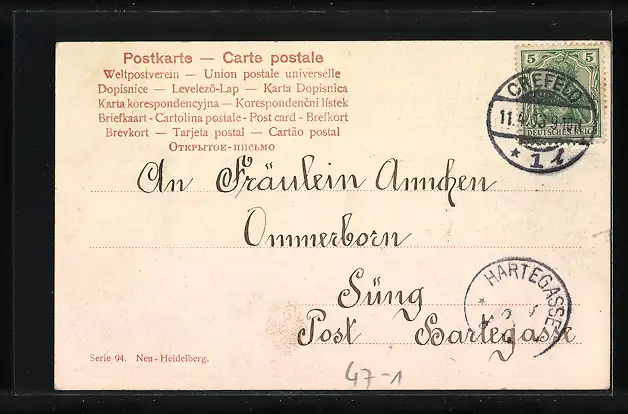 Postkarte — Carte postale
Weltpostverein — Union postale universelle
Dopisnice — Levelező-Lap — Karta Dopisnica
Karta korespondencyjna — Korespondenční lístek
Briefkaart - Cartolina postale - Post card - Brefkort
Brevkort — Tarjeta postal — Cartão postal
Открытое-письмо
5 5
DEUTSCHES REICH
CREFELD
* 1 l
An Fräulein Annchen
Ommerborn
Süng
Post Hartegasse
HARTEGASSE
Serie 94. Neu-Heidelberg.
47-1